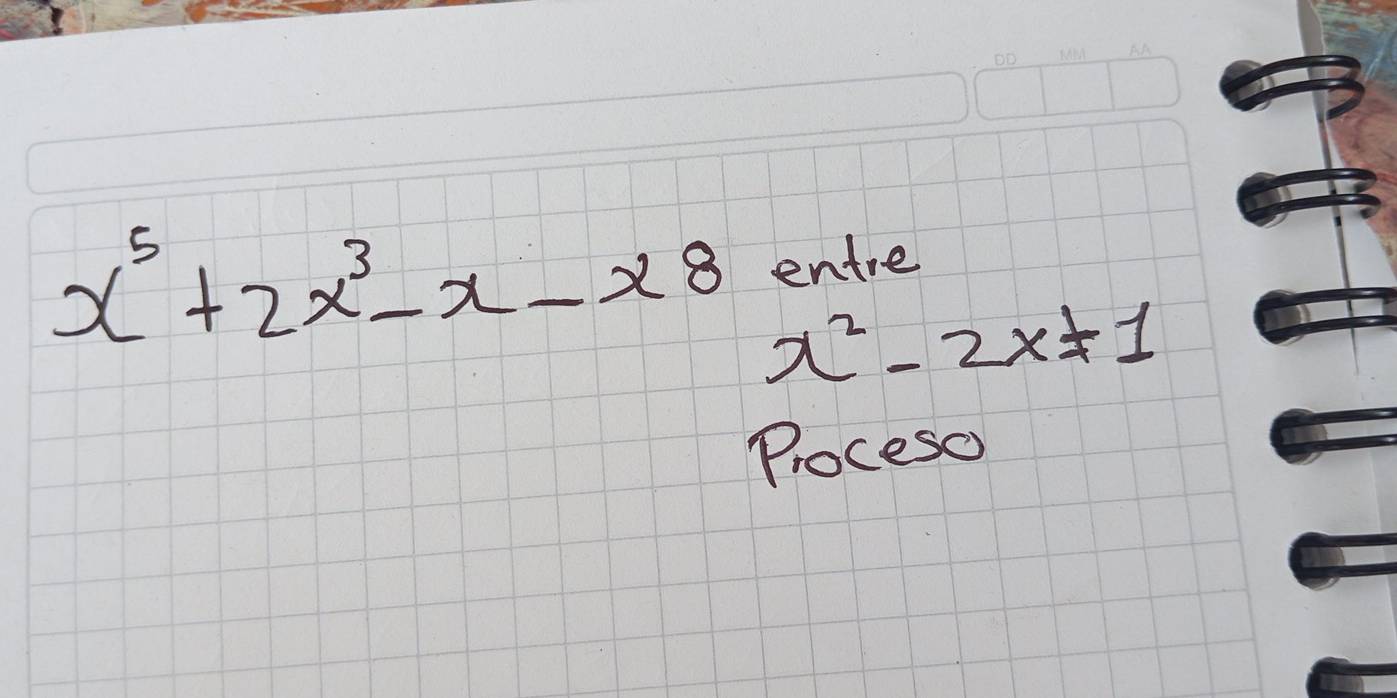 DD MM AA
x⁵ + 2x³ - x - x 8 entre
x² - 2x + 1
Proceso